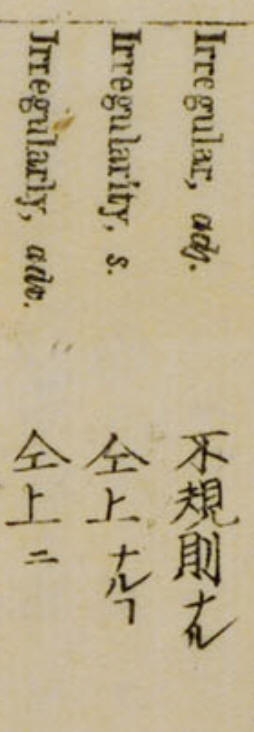 Irregular, adj. 不規則ナル
Irregularity, s. 仝上ナルヿ
Irregularly, adv. 仝上ニ